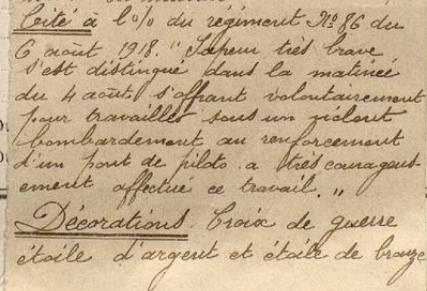 Cité à l'o/o du régiment N° 86 du
6 août 1918. " Sapeur très brave
s'est distingué dans la matinée
du 4 août s'offrant volontairement
pour travailler sous un violent
bombardement au renforcement
d'un pont de pilots. a très courageus-
ement affectué ce travail. "
Décorations. Croix de guerre
étoile d'argent et étoile de bronze